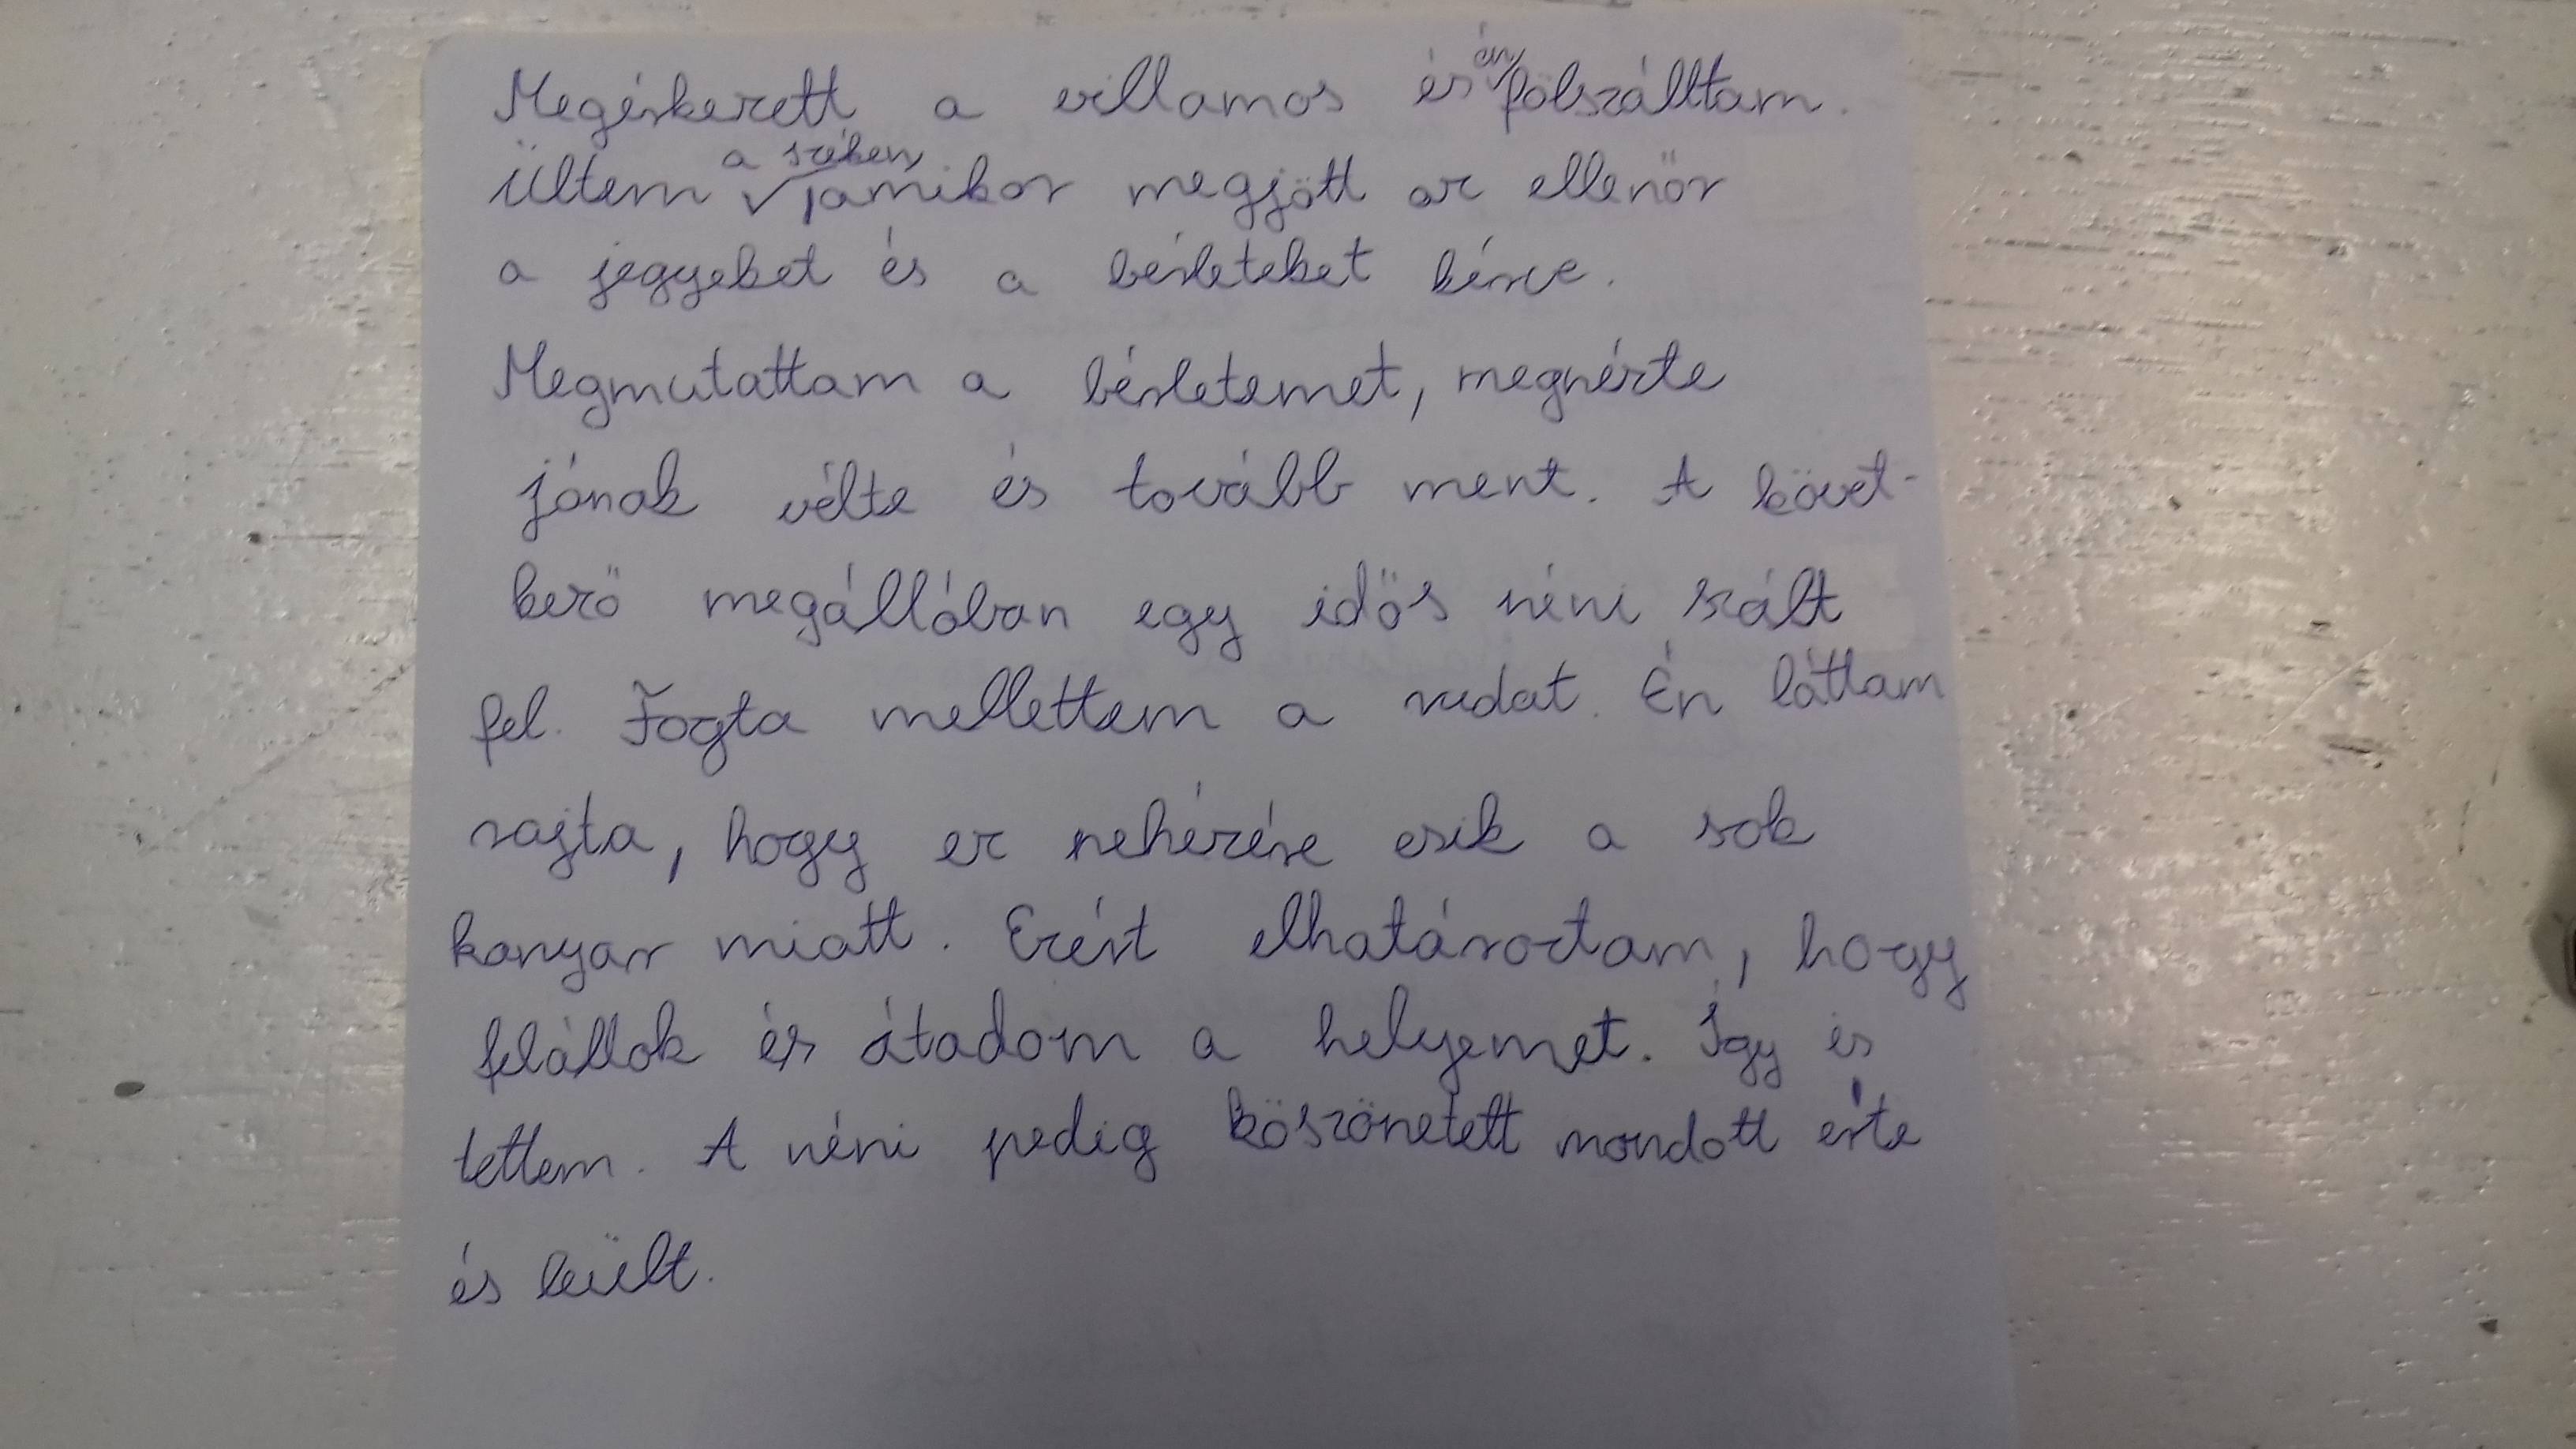 Megérkezett a villamos és én fölszálltam.
Ültem a széken, amikor megjött az ellenőr
a jegyeket és a bérleteket kérve.
Megmutattam a bérletemet, megnézte
jónak vélte és tovább ment. A követ-
kező megállóban egy idős néni szált
fel. Fogta mellettem a rudat. Én láttam
rajta, hogy ez nehézére esik a sok
kanyar miatt. Ezért elhatároztam, hogy
felállok és átadom a helyemet. Így is
tettem. A néni pedig köszönetett mondott érte
és leült.